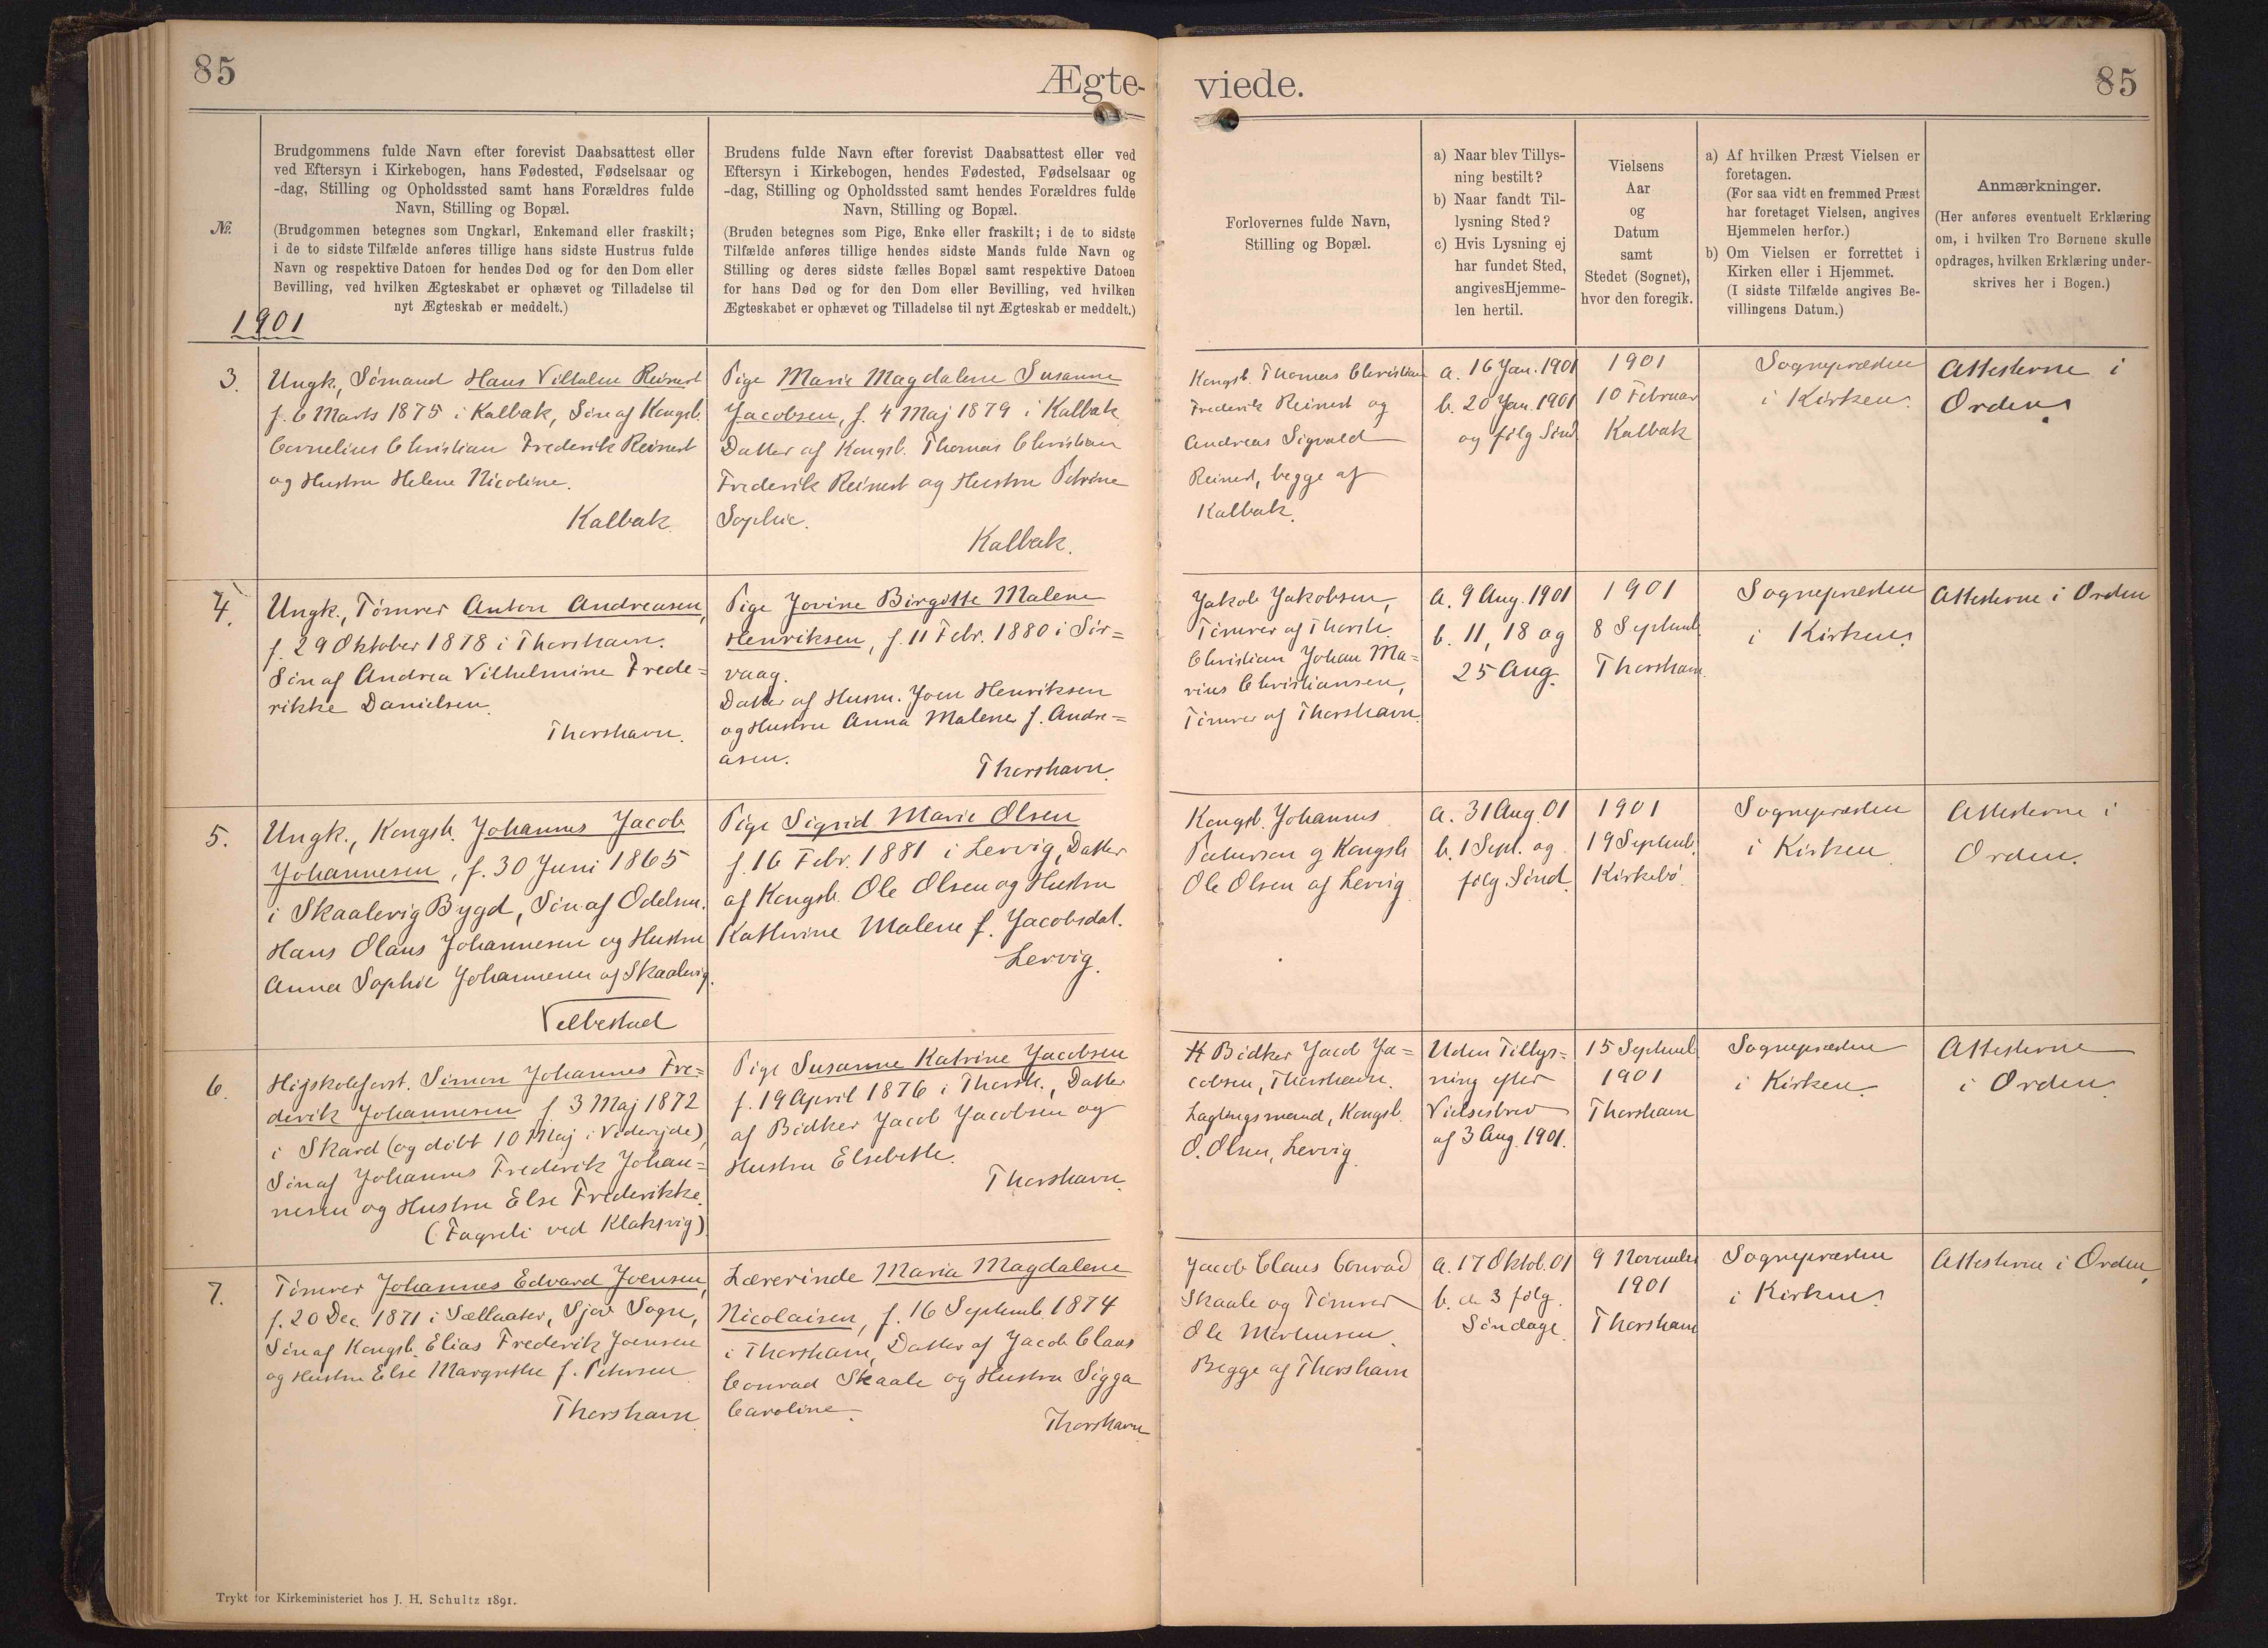 85
Ægte-
viede.
85
№.
Brudgommens fulde Navn efter forevist Daabsattest eller
ved Eftersyn i Kirkebogen, hans Fødested, Fødselsaar og
-dag, Stilling og Opholdssted samt hans Forældres fulde
Navn, Stilling og Bopæl.
(Brudgommen betegnes som Ungkarl, Enkemand eller fraskilt;
i de to sidste Tilfælde anføres tillige hans sidste Hustrus fulde
Navn og respektive Datoen for hendes Død og for den Dom eller
Bevilling, ved hvilken Ægteskabet er ophævet og Tilladelse til
nyt Ægteskab er meddelt.)
Brudens fulde Navn efter forevist Daabsattest eller ved
Eftersyn i Kirkebogen, hendes Fødested, Fødselsaar og
-dag, Stilling og Opholdssted samt hendes Forældres fulde
Navn, Stilling og Bopæl.
(Bruden betegnes som Pige, Enke eller fraskilt; i de to sidste
Tilfælde anføres tillige hendes sidste Mands fulde Navn og
Stilling og deres sidste fælles Bopæl samt respektive Datoen
for hans Død og for den Dom eller Bevilling, ved hvilken
Ægteskabet er ophævet og Tilladelse til nyt Ægteskab er meddelt.)
Forlovernes fulde Navn,
Stilling og Bopæl.
a) Naar blev Tillys-
ning bestilt?
b) Naar fandt Til-
lysning Sted?
c) Hvis Lysning ej
har fundet Sted,
angivesHjemme-
len hertil.
Vielsens
Aar
og
Datum
samt
Stedet (Sognet),
hvor den foregik.
a) Af hvilken Præst Vielsen er
foretagen.
(For saa vidt en fremmed Præst
har foretaget Vielsen, angives
Hjemmelen herfor.)
b) Om Vielsen er forrettet i
Kirken eller i Hjemmet.
(I sidste Tilfælde angives Be-
villingens Datum.)
Anmærkninger.
(Her anføres eventuelt Erklæring
om, i hvilken Tro Børnene skulle
opdrages, hvilken Erklæring under-
skrives her i Bogen.)
1901
3.
Ungk., Sømand Hans Vilhelm Reinert
f. 6 Marts 1875 i Kalbak, Søn af Kongsb.
Cornelius Christian Frederik Reinert
og Hustru Helene Nicoline.
Kalbak.
Pige Marie Magdalene Susanne
Jacobsen, f. 4 Maj 1879 i Kalbak
Datter af Kongsb. Thomas Christian
Frederik Reinert og Hustru Petrine
Sophie.
Kalbak.
Kongsb. Thomas Christian
Frederik Reinert og
Andreas Sigvald
Reinert, begge af
Kalbak.
a. 16 Jan. 1901
b. 20 Jan. 1901
og følg Sønd
1901
10 Februar
Kalbak
Sognepræsten
i Kirken.
Attesterne i
Orden.
4.
Ungk., Tømrer Anton Andreasen,
f. 29 Oktober 1878 i Thorshavn.
Søn af Andrea Vilhelmine Frede=
rikke Danielsen.
Thorshavn.
Pige Jovine Birgitte Malene
Henriksen, f. 11 Febr. 1880 i Sør=
vaag.
Datter af Husm. Joen Henriksen
og Hustru Anna Malene f. Andre=
asen.
Thorshavn.
Jakob Jakobsen,
Tømrer af Thorsh.
Christian Johan Ma=
rius Christiansen,
Tømrer af Thorshavn.
a. 9 Aug. 1901
b. 11, 18 og
25 Aug.
1901
8 Septemb.
Thorshavn
Sognepræsten
i Kirken.
Attesterne i Orden
5.
Ungk., Kongsb. Johannes Jacob
Johannesen, f. 30 Juni 1865
i Skaalevig Bygd, Søn af Odelsm.
Hans Olaus Johannesen og Hustru
Anna Sophie Johannesen af Skaalevig.
Velbestad
Pige Sigrid Marie Olsen
f. 16 Febr. 1881 i Lervig, Datter
af Kongsb. Ole Olsen og Hustru
Kathrine Malene f. Jacobsdat.
Lervig.
Kongsb. Johannes
Patursson og Kongsb
Ole Olsen af Lervig
a. 31 Aug. 01
b. 1 Sept. og
følg. Sønd.
1901
19 Septemb.
Kirkebø.
Sognepræsten
i Kirken
Attesterne i
Orden.
6.
Højskoleforst. Simon Johannes Fre=
derik Johannesen f. 3 Maj 1872
i Skard (og døbt 10 Maj i Viderejde),
Søn af Johannes Frederik Johan=
nesen og Hustru Else Frederikke.
(Fagreli ved Klaksvig).
Pige Susanne Katrine Jacobsen
f. 19 April 1876 i Thorsh., Datter
af Bødker Jacob Jacobsen og
Hustru Elsebeth.
Thorshavn.
Bødker Jacob Ja=
cobsen, Thorshavn.
Lagtingsmand, Kongsb.
O. Olsen, Lervig.
Uden Tillys=
ning efter
Vielsesbrev
af 3 Aug. 1901.
15 Septemb
1901
Thorshavn
Sognepræsten
i Kirken
Attesterne
i Orden.
7.
Tømrer Johannes Edvard Joensen,
f. 20 Dec. 1871 i Sælteater, Sjov Sogn,
Søn af Kongsb. Elias Frederik Joensen
og Hustru Else Margrethe f. Petersen
Thorshavn
Lærerinde Maria Magdalene
Nicolaisen, f. 16 Septemb. 1874
i Thorshavn, Datter af Jacob Claus
Conrad Skaale og Hustru Sigga
Caroline.
Thorshavn
Jacob Claus Conrad
Skaale og Tømrer
Ole Mortensen
Begge af Thorshavn
a. 17 Oktob. 01
b. de 3 følg.
Søndage.
9 November
1901
Thorshavn
Sognepræsten
i Kirken.
Attesterne i Orden,
Trykt for Kirkeministeriet hos J. H. Schultz 1891.